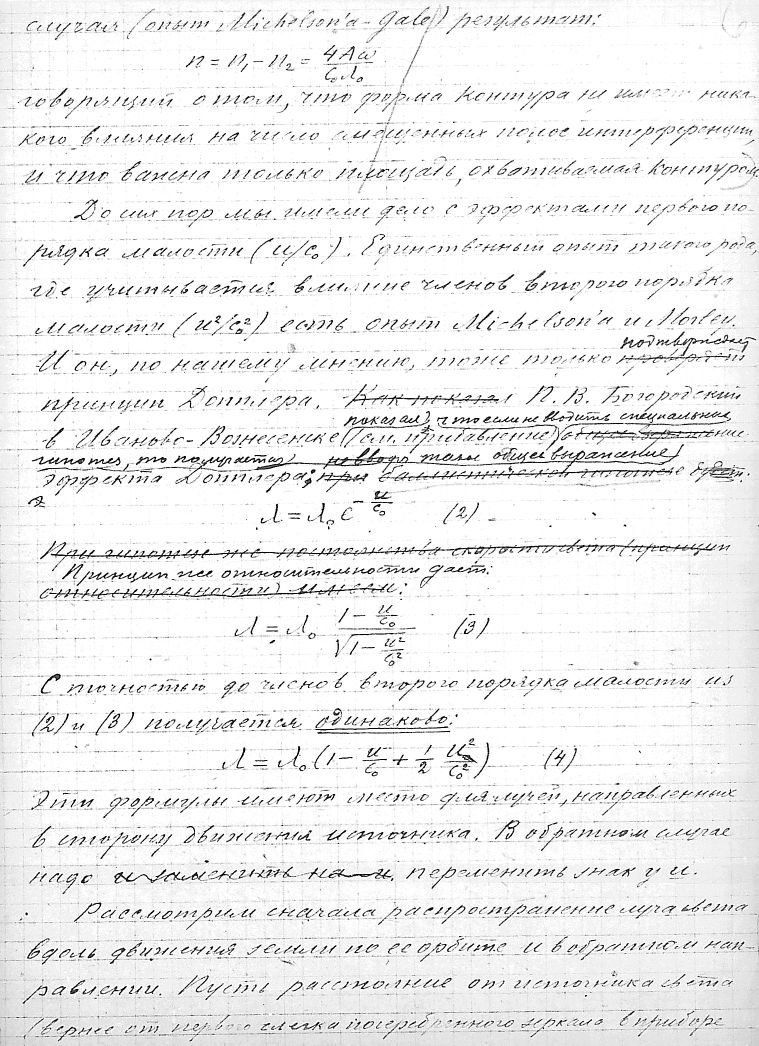 случая (опыт Michelson'a-Gale) результат:
n = n₁ - n₂ = 4Aω / c₀λ₀
говорящий о том, что форма контура не имеет ника-
кого влияния на число смещенных полос интерференции,
и что важна только площадь, охватываемая контуром.
До сих пор мы имели дело с эффектами первого по-
рядка малости (u/c₀). Единственный опыт такого рода,
где учитывается влияние членов второго порядка
малости (u²/c₀²) есть опыт Michelson'a и Morley.
подтверждает
И он, по нашему мнению, тоже только
принцип Допплера. Как показал П. В. Богородский
показал, что если не вводить специальные
в Иваново-Вознесенске (см. прибавление) общее выражение
гипотез, то получается не вводя такое общее выражение
эффекта Допплера: при баллистической гипотезе будет:
λ = λ₀ e^(-u/c₀) (2)
При гипотезе же постоянства скорости света (принцип
Принцип же относительности дает:
относительности) имеем:
λ = λ₀ (1 - u/c₀) / √(1 - u²/c₀²) (3)
С точностью до членов второго порядка малости из
(2) и (3) получается одинаково:
λ = λ₀ (1 - u/c₀ + 1/2 u²/c₀²) (4)
Эти формулы имеют место для лучей, направленных
в сторону движения источника. В обратном случае
надо u заменить на -u. переменить знак у u.
Рассмотрим сначала распространение луча света
вдоль движения земли по ее орбите и в обратном нап-
равлении. Пусть расстояние от источника света
(вернее от первого слегка посеребренного зеркала в приборе